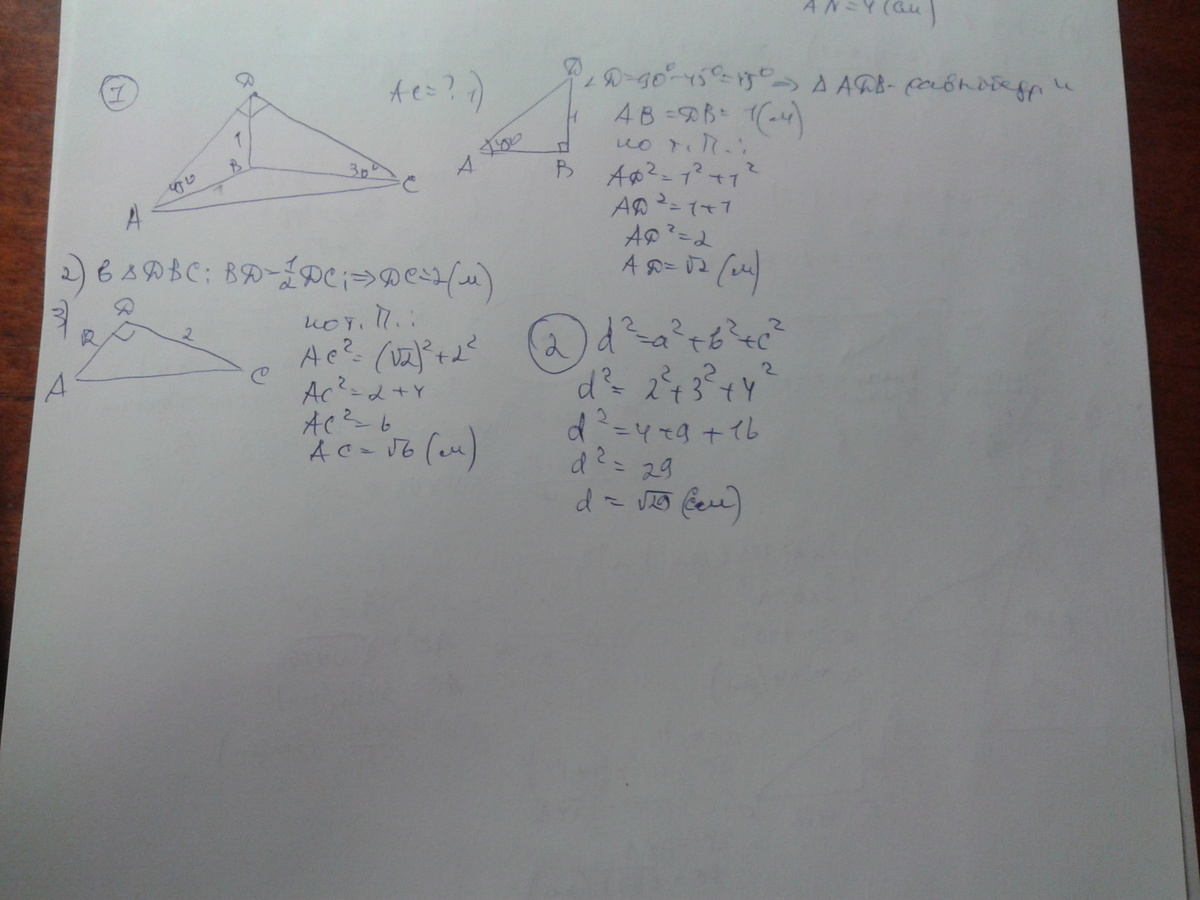 AN=4(см)
1
D
1
B
45°
1
30°
C
A
AC=?
1)
D
1
A
45°
B
∠D=90°-45°=45° => △ADB-равнобедр и
AB=DB=1(м)
по т. П.:
AD²=1²+1²
AD²=1+1
AD²=2
AD=√2 (м)
2) в △DBC: BD=½DC; => DC=2(м)
3)
D
√2
2
A
C
по т. П.:
AC²=(√2)²+2²
AC²=2+4
AC²=6
AC=√6 (м)
2
d²=a²+b²+c²
d²=2²+3²+4²
d²=4+9+16
d²=29
d=√29 (см)